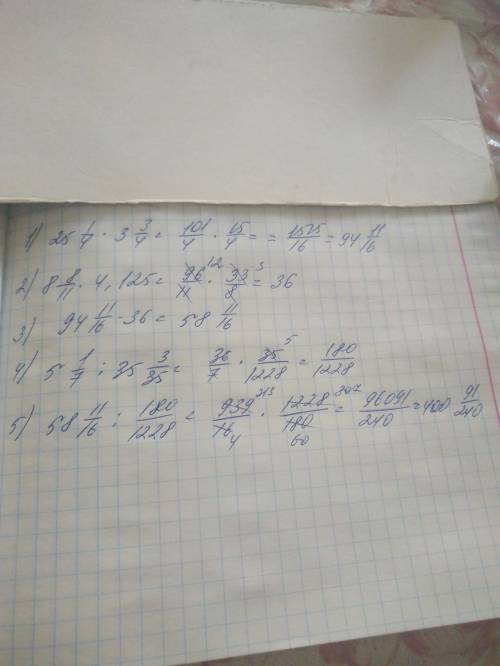 1) 25 1/4 · 3 3/4 = 101/4 · 15/4 = = 1515/16 = 94 11/16
2) 8 8/11 · 4,125 = 96/11 12 · 33/8 3 = 36
3) 94 11/16 - 36 = 58 11/16
4) 5 1/7 : 35 3/35 = 36/7 · 35/1228 5 = 180/1228
5) 58 11/16 : 180/1228 = 939/16 313 4 · 1228/180 307 60 = 96091/240 = 400 91/240